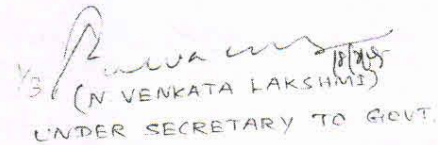 (N VENKATA LAKSHMI)
UNDER SECRETARY TO GOVT.